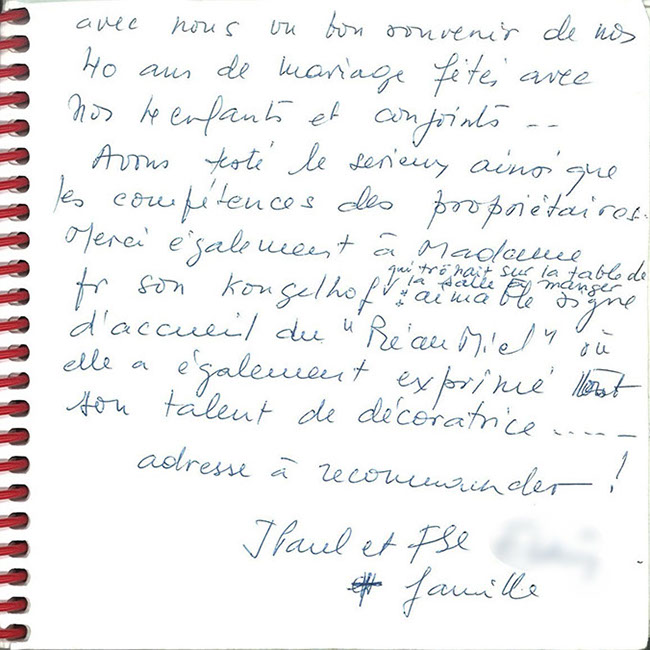 avec nous un bon souvenir de nos
40 ans de mariage fêtés avec
nos 4 enfants et conjoints --
Avons testé le serieux ainsi que
les compétences des propriétaires.
Merci également à Madame
qui trônait sur la table de
la salle à manger
pr son Kougelhof aimable signe
d'accueil du "Pré au Miel" où
elle a également exprimé tout
son talent de décoratrice .....
adresse à recommander !
JPaul et FSe
famille